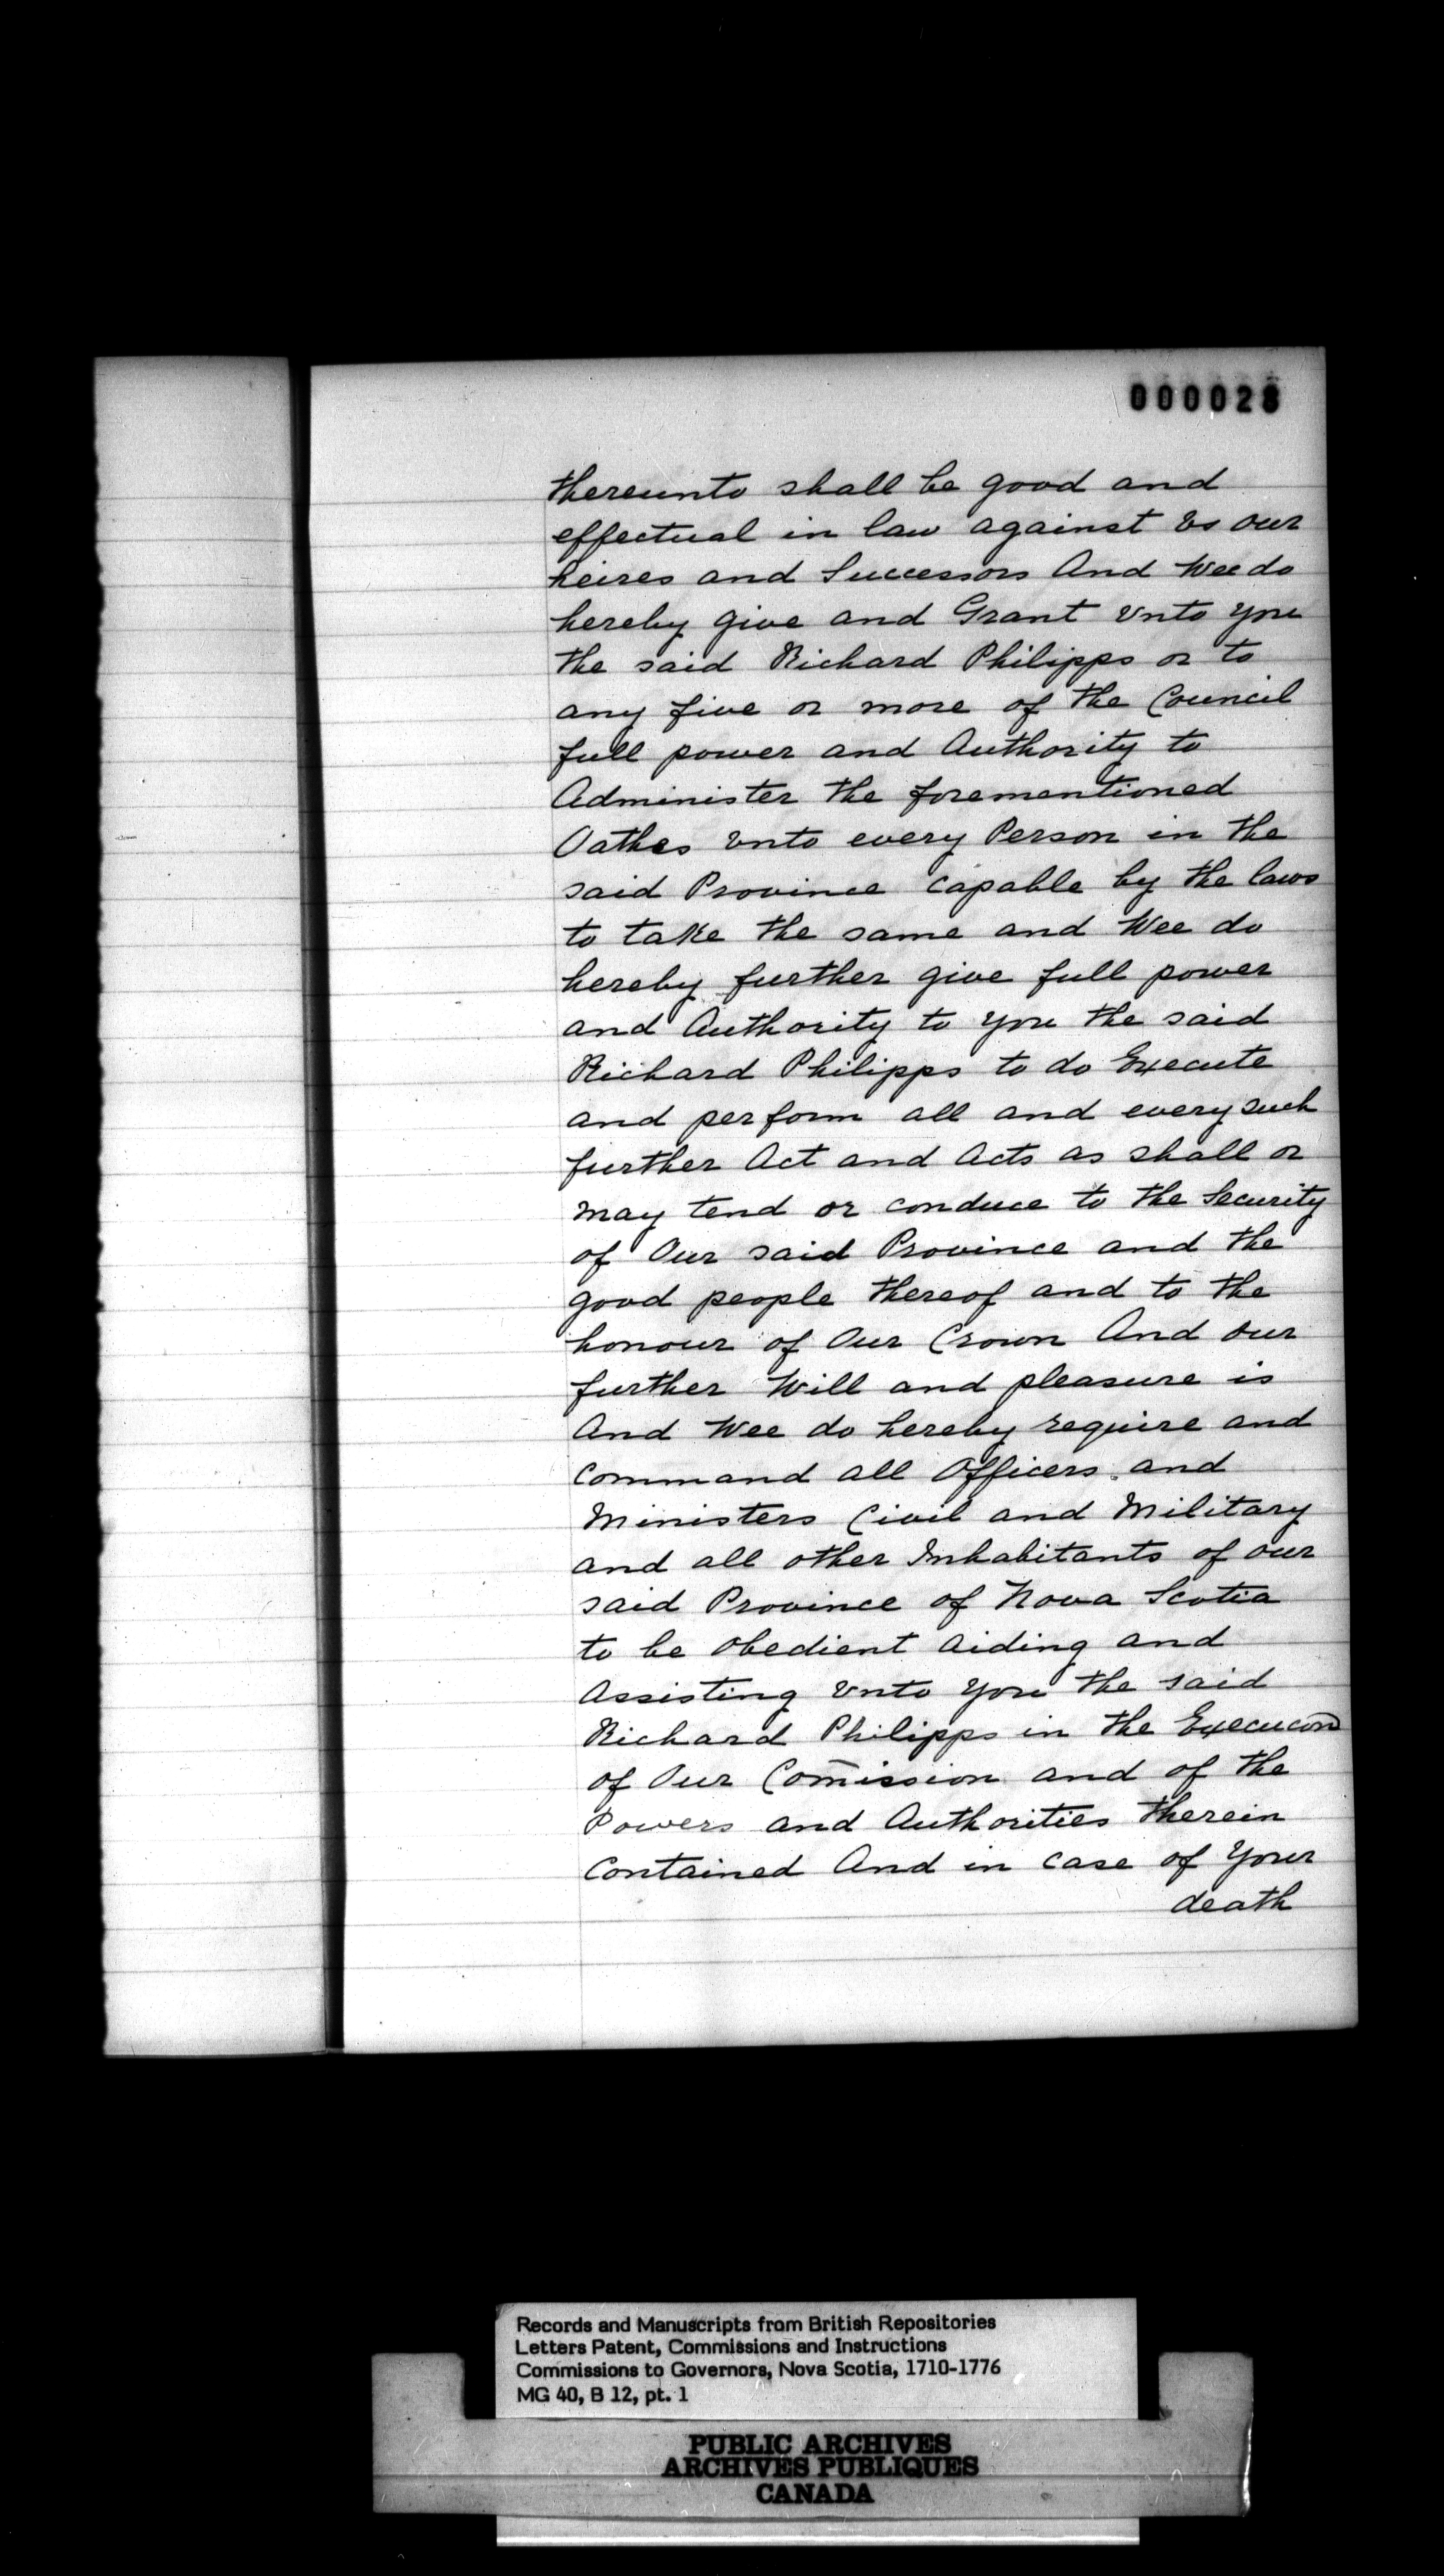 000028
thereunto shall be good and
effectual in law against Vs our
heires and Successors And Wee do
hereby give and Grant Vnto you
the said Richard Philipps or to
any five or more of the Council
full power and Authority to
Administer the forementioned
Oathes Vnto every Person in the
said Province capable by the laws
to take the same and Wee do
hereby further give full power
and Authority to you the said
Richard Philipps to do Execute
and perform all and every such
further Act and Acts as shall or
may tend or conduce to the Security
of Our said Province and the
good people thereof and to the
honour of Our Crown And our
further Will and pleasure is
And Wee do hereby require and
Command all Officers and
Ministers Civil and Military
and all other Inhabitants of our
said Province of Nova Scotia
to be obedient aiding and
Assisting Vnto you the said
Richard Philipps in the Execucon
of Our Com̄ission and of the
Powers and Authorities therein
Contained And in case of Your
death
Records and Manuscripts from British Repositories
Letters Patent, Commissions and Instructions
Commissions to Governors, Nova Scotia, 1710-1776
MG 40, B 12, pt. 1
PUBLIC ARCHIVES
ARCHIVES PUBLIQUES
CANADA